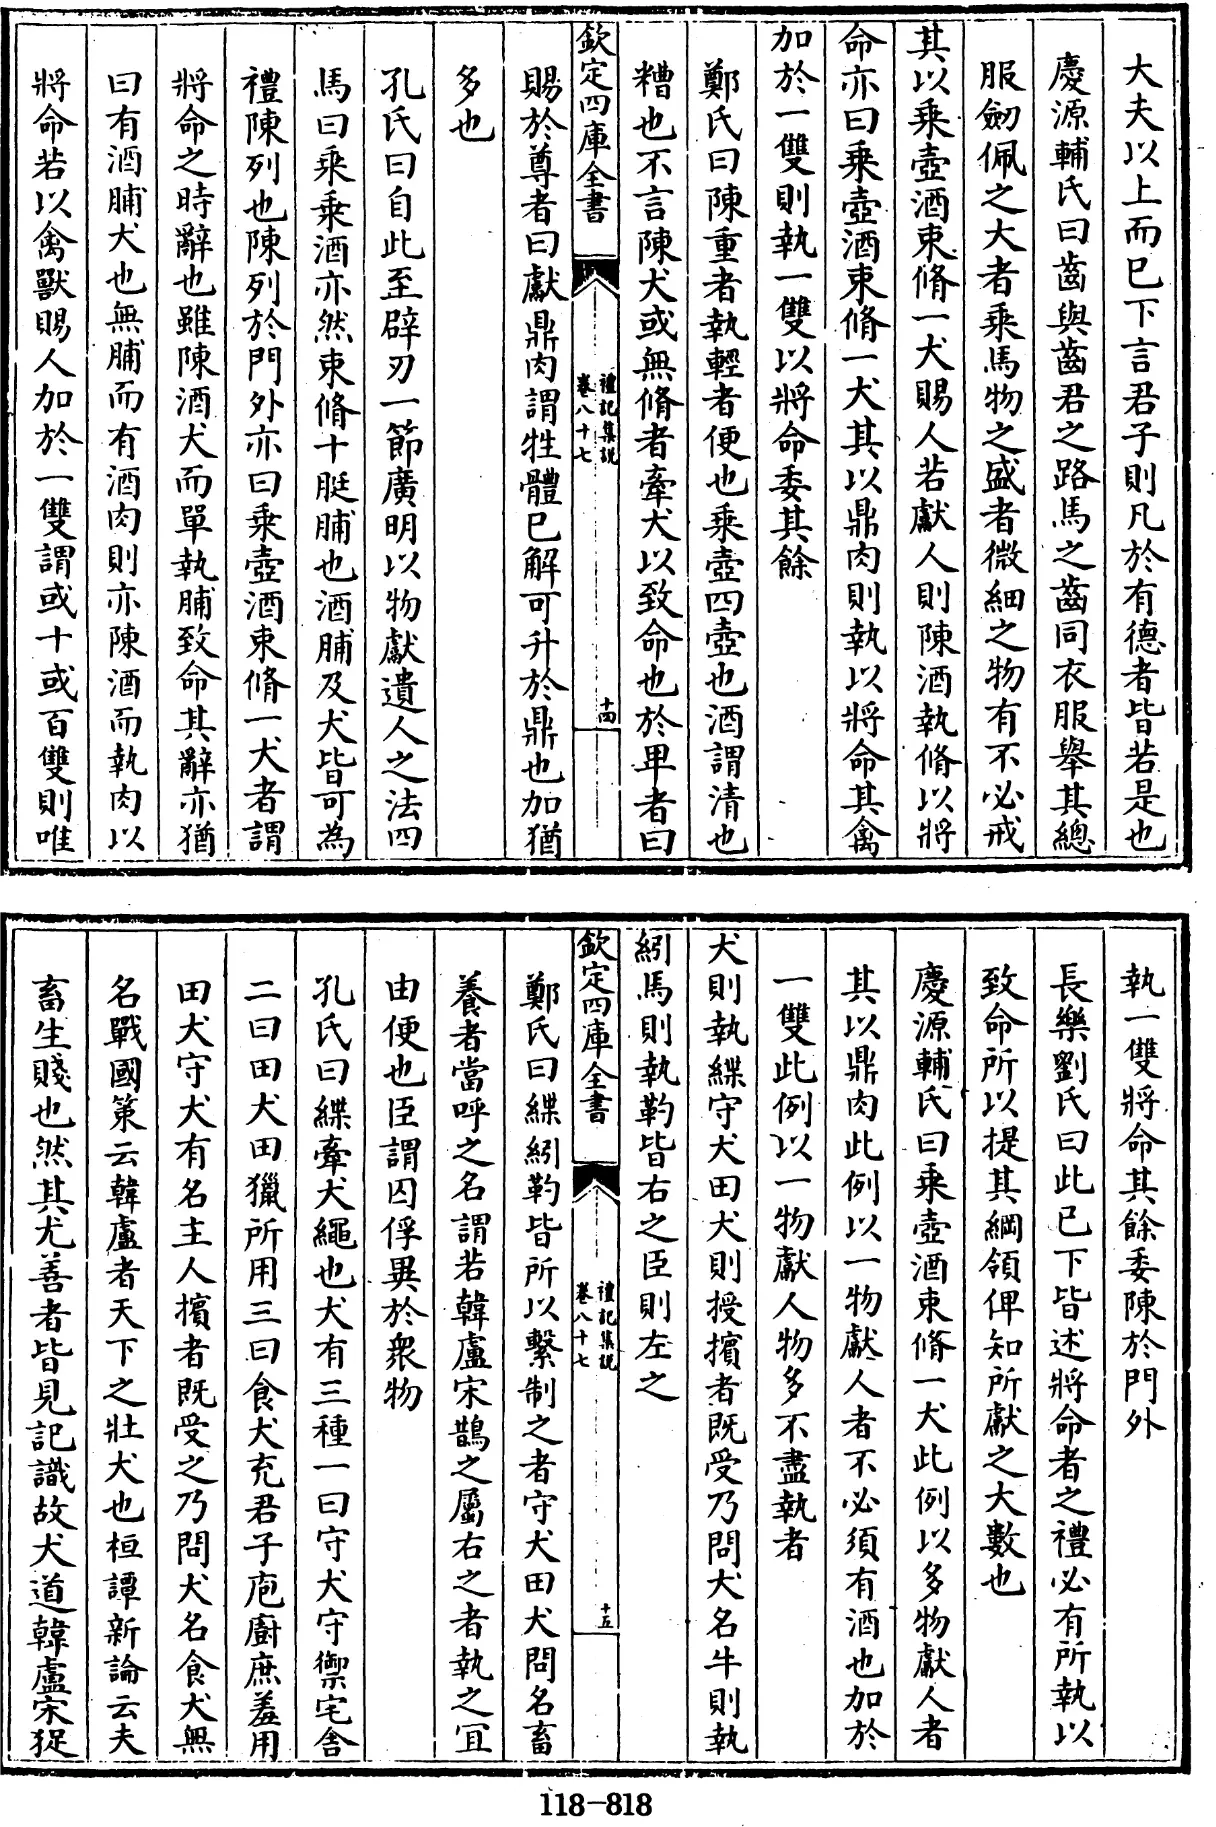 大夫以上而已下言君子則凡於有德者皆若是也
慶源輔氏曰齒與齒君之路馬之齒同衣服舉其總
服劒佩之大者乘馬物之盛者微細之物有不必戒
其以乘壺酒束脩一犬賜人若獻人則陳酒執脩以將
命亦曰乘壺酒束脩一犬其以鼎肉則執以將命其禽
加於一雙則執一雙以將命委其餘
鄭氏曰陳重者執輕者便也乘壺四壺也酒謂清也
糟也不言陳犬或無脩者牽犬以致命也於卑者曰
欽定四庫全書
禮記集說
卷八十七
十四
賜於尊者曰獻鼎肉謂牲體已解可升於鼎也加猶
多也
孔氏曰自此至辟刃一節廣明以物獻遺人之法四
馬曰乘乘酒亦然束脩十脡脯也酒脯及犬皆可為
禮陳列也陳列於門外亦曰乘壺酒束脩一犬者謂
將命之時辭也雖陳酒犬而單執脯致命其辭亦猶
曰有酒脯犬也無脯而有酒肉則亦陳酒而執肉以
將命若以禽獸賜人加於一雙謂或十或百雙則唯
執一雙將命其餘委陳於門外
長樂劉氏曰此已下皆述將命者之禮必有所執以
致命所以提其綱領俾知所獻之大數也
慶源輔氏曰乘壺酒束脩一犬此例以多物獻人者
其以鼎肉此例以一物獻人者不必須有酒也加於
一雙此例以一物獻人物多不盡執者
犬則執緤守犬田犬則授擯者既受乃問犬名牛則執
紖馬則執靮皆右之臣則左之
欽定四庫全書
禮記集說
卷八十七
十五
鄭氏曰緤紖靮皆所以繫制之者守犬田犬問名畜
養者當呼之名謂若韓盧宋鵲之屬右之者執之宜
由便也臣謂囚俘異於衆物
孔氏曰緤牽犬繩也犬有三種一曰守犬守禦宅舍
二曰田犬田獵所用三曰食犬充君子庖廚庶羞用
田犬守犬有名主人擯者既受之乃問犬名食犬無
名戰國策云韓盧者天下之壯犬也桓譚新論云夫
畜生賤也然其尤善者皆見記識故犬道韓盧宋㹱
118-818